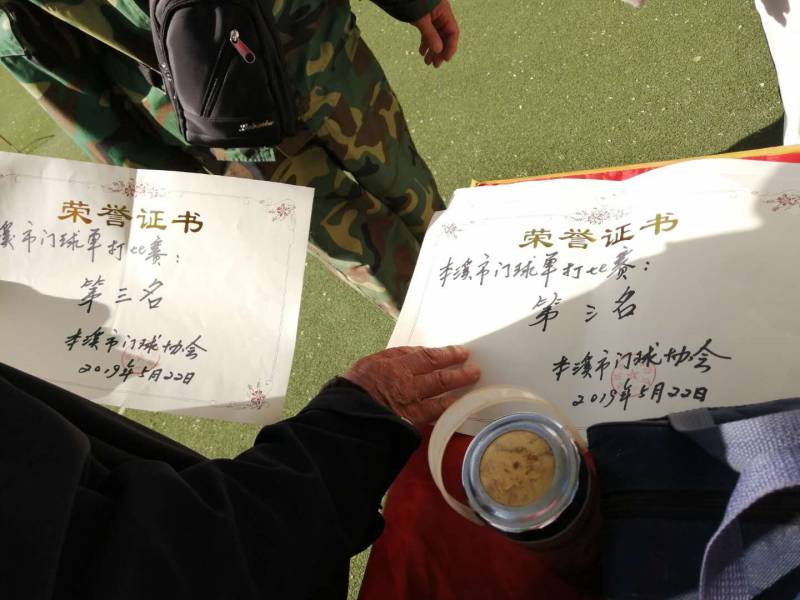 荣誉证书
溪市门球单打比赛：
第三名
本溪市门球协会
2019年5月22日
荣誉证书
本溪市门球单打比赛：
第三名
本溪市门球协会
2019年5月22日